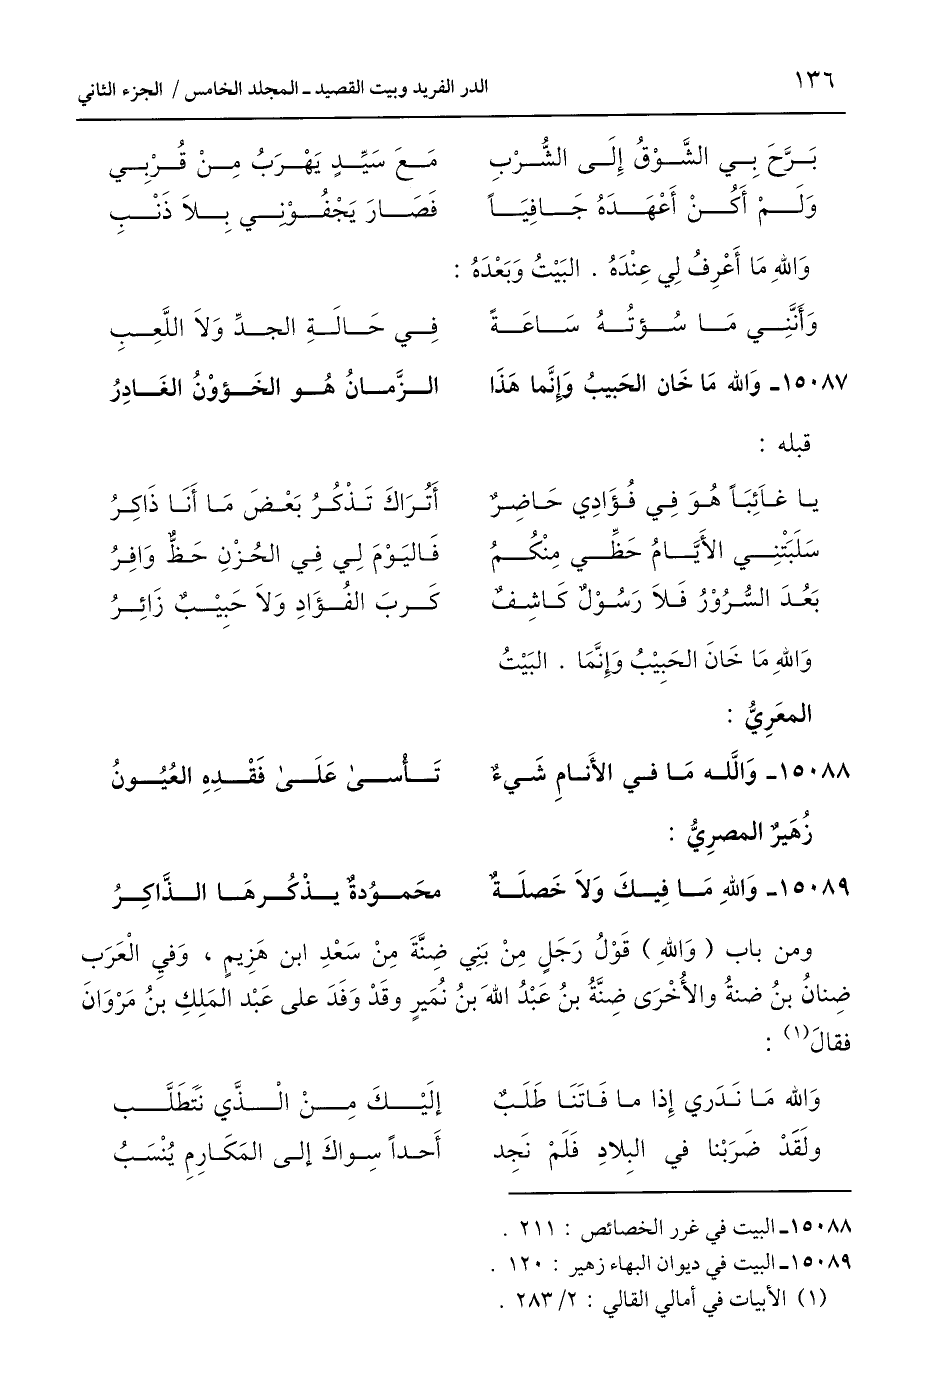 ١٣٦ الدر الفريد وبيت القصيد ـ المجلد الخامس / الجزء الثاني
بَرَّحَ بِي الشَّوْقُ إِلَى الشُّرْبِ مَعَ سَيِّدٍ يَهْرَبُ مِنْ قُرْبِي
وَلَمْ أَكُنْ أَعْهَدُهُ جَافِيَاً فَصَارَ يَجْفُوْنِي بِلاَ ذَنْبِ
وَاللهِ مَا أَعْرِفُ لِي عِنْدَهُ . البَيْتُ وَبَعْدَهُ :
وَأَنَّنِي مَا سُؤتُهُ سَاعَةً فِي حَالَةِ الجدِّ وَلاَ اللَّعِبِ
١٥٠٨٧ـ وَالله مَا خَان الحَبِيبُ وَإِنَّما هَذَا الزَّمانُ هُو الخَؤوْنُ الغَادِرُ
قبله :
يا غَائِبَاً هُوَ فِي فُؤَادِي حَاضِرٌ أَتُرَاكَ تَذْكُرُ بَعْضَ مَا أَنَا ذَاكِرُ
سَلَبَتْنِي الأَيَّامُ حَظِّي مِنْكُمُ فَاليَوْمَ لِي فِي الحُزْنِ حَظٌّ وَافِرُ
بَعُدَ السُّرُوْرُ فَلاَ رَسُوْلٌ كَاشِفٌ كَربَ الفُؤَادِ وَلاَ حَبِيْبٌ زَائِرُ
وَاللهِ مَا خَانَ الحَبِيْبُ وَإِنَّمَا . البَيْتُ
المعَرِيُّ :
١٥٠٨٨ـ وَاللَّه مَا في الأَنامِ شَيءٌ تَأسىٰ عَلَىٰ فَقْدِهِ العُيُونُ
زُهَيرٌ المصرِيُّ :
١٥٠٨٩ـ وَاللهِ مَا فِيكَ وَلاَ خَصلَةٌ محَموُدةٌ يذْكُرهَا الذَّاكِرُ
ومن باب ( وَاللهِ ) قَوْلُ رَجَلٍ مِنْ بَنِي ضِنَّةَ مِنْ سَعْدِ ابن هَزِيمٍ ، وَفيِ الْعَرَب
ضِنانُ بنُ ضنةُ والأُخْرَى ضِنَّةُ بنُ عَبْدُ اللهَ بنُ نُمَيرٍ وقَدْ وَفَدَ على عَبْد الملِكِ بنُ مَرْوَانَ
فقالَ(١) :
وَالله مَا نَدَري إِذا ما فَاتَنَا طَلَبٌ إِلَيْكَ مِنْ الْذَّي نَتَطَلَّب
ولَقَدْ ضَرَبْنا في البِلادِ فَلَمْ نَجد أَحداً سِواكَ إلى المَكَارِمِ يُنْسَبُ
١٥٠٨٨ـ البيت في غرر الخصائص : ٢١١ .
١٥٠٨٩ـ البيت في ديوان البهاء زهير : ١٢٠ .
(١) الأبيات في أمالي القالي : ٢٨٣/٢ .